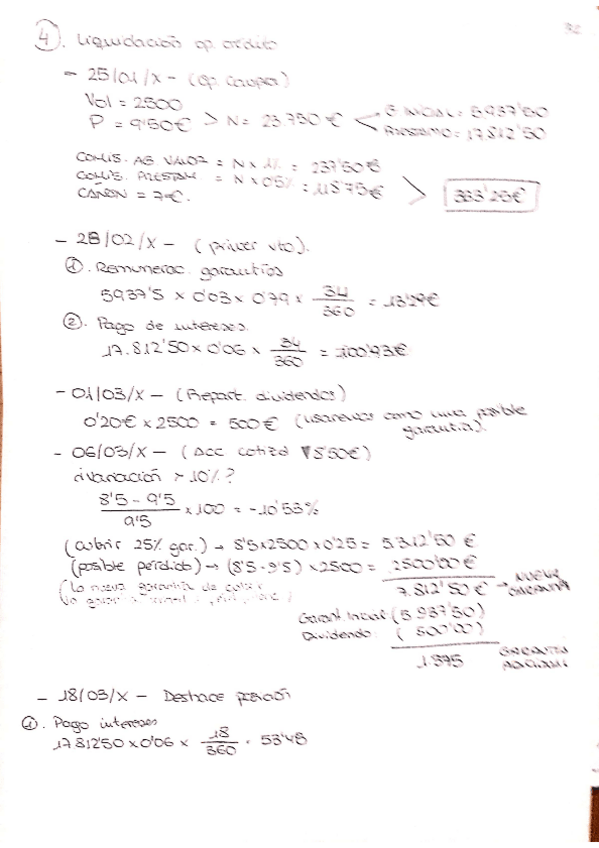 4. Liquidación op. crédito
- 25/01/X - (Op. compra)
Vol = 2500
P = 9'50€ > N = 23.750€ < G. INICIAL = 5.937'50
PRESTAMO = 17.812'50
COMIS. AG VALOR = N x 1% = 237'50€
COMIS. PRESTAM. = N x 0'5% = 118'75€ > 363'25€
CANON = 7€.
- 28/02/X - (primer vto).
① . Remunerac. garantías
5937'5 x 0'03 x 0'79 x 34/360 = 13'29€
② . Pago de intereses.
17.812'50 x 0'06 x 34/360 = 100'93€
- 01/03/X - (Repart. dividendos)
0'20€ x 2500 = 500€ (usaremos como una posible
garantía).
- 06/03/X - (Acc cotizd ▼8'50€)
¿Variación > 10%?
8'5 - 9'5 / 9'5 x 100 = -10'53%
(cubrir 25% gar.) → 8'5 x 2500 x 0'25 = 5.312'50 €
(posible pérdida) → (8'5 - 9'5) x 2500 = 2500'00 €
(la nueva garantía de cubrir
7.812'50 € → NUEVA GARANTÍA
Garant. Inicial (5 937'50)
Dividendo (500'00)
1.375 GARANTÍA
ADICIONAL
- 18/03/X - Deshace posición
① . Pago intereses
17812'50 x 0'06 x 18/360 = 53'43